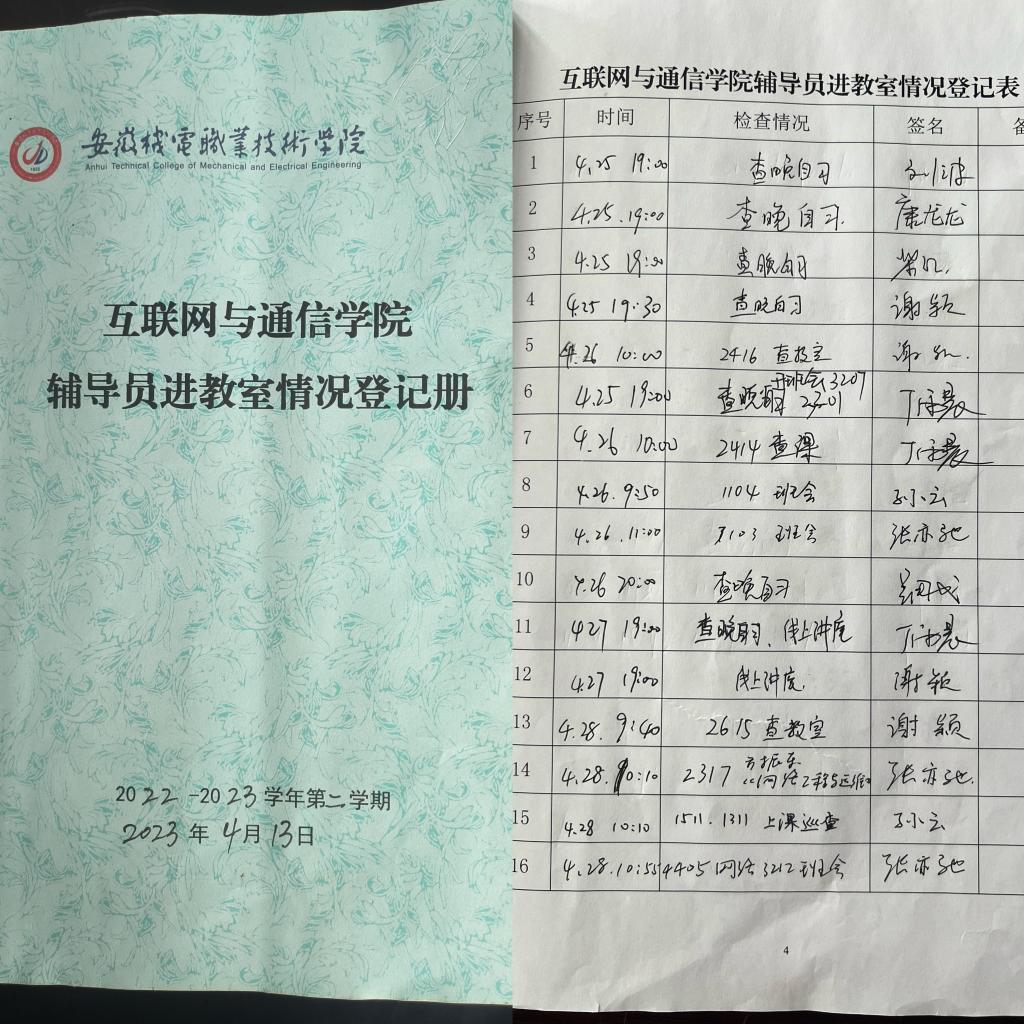 安徽機電職業技術學院
Anhui Technical College of Mechanical and Electrical Engineering
互联网与通信学院
辅导员进教室情况登记册
2022-2023学年第二学期
2023年4月13日
互联网与通信学院辅导员进教室情况登记表
序号 时间 检查情况 签名 备
1 4.25 19:00 查晚自习
2 4.25.19:00 查晚自习. 唐龙龙
3 4.25 19:00 查晚自习
4 4.25 19:30 查晚自习 谢颖
5 4.26 10:00 2416 查教室
6 4.25 19:00 查晚自习 2201 开班会 3207
7 4.26 10:00 2414 查课
8 4.26.9:50 1104 班会 孙小云
9 4.26.11:00 班会 张亦弛
10 4.26 20:00 查晚自习
11 4.27 19:00 查晚自习、线上讲座
12 4.27 19:00 线上讲座. 谢颖
13 4.28.9:40 2615 查教室 谢颖
14 4.28.10:10 2317 张亦弛.
15 4.28 10:10 1511.1311 上课巡查 孙小云
16 4.28.10:55 4405 网络3212班会 张亦弛
4